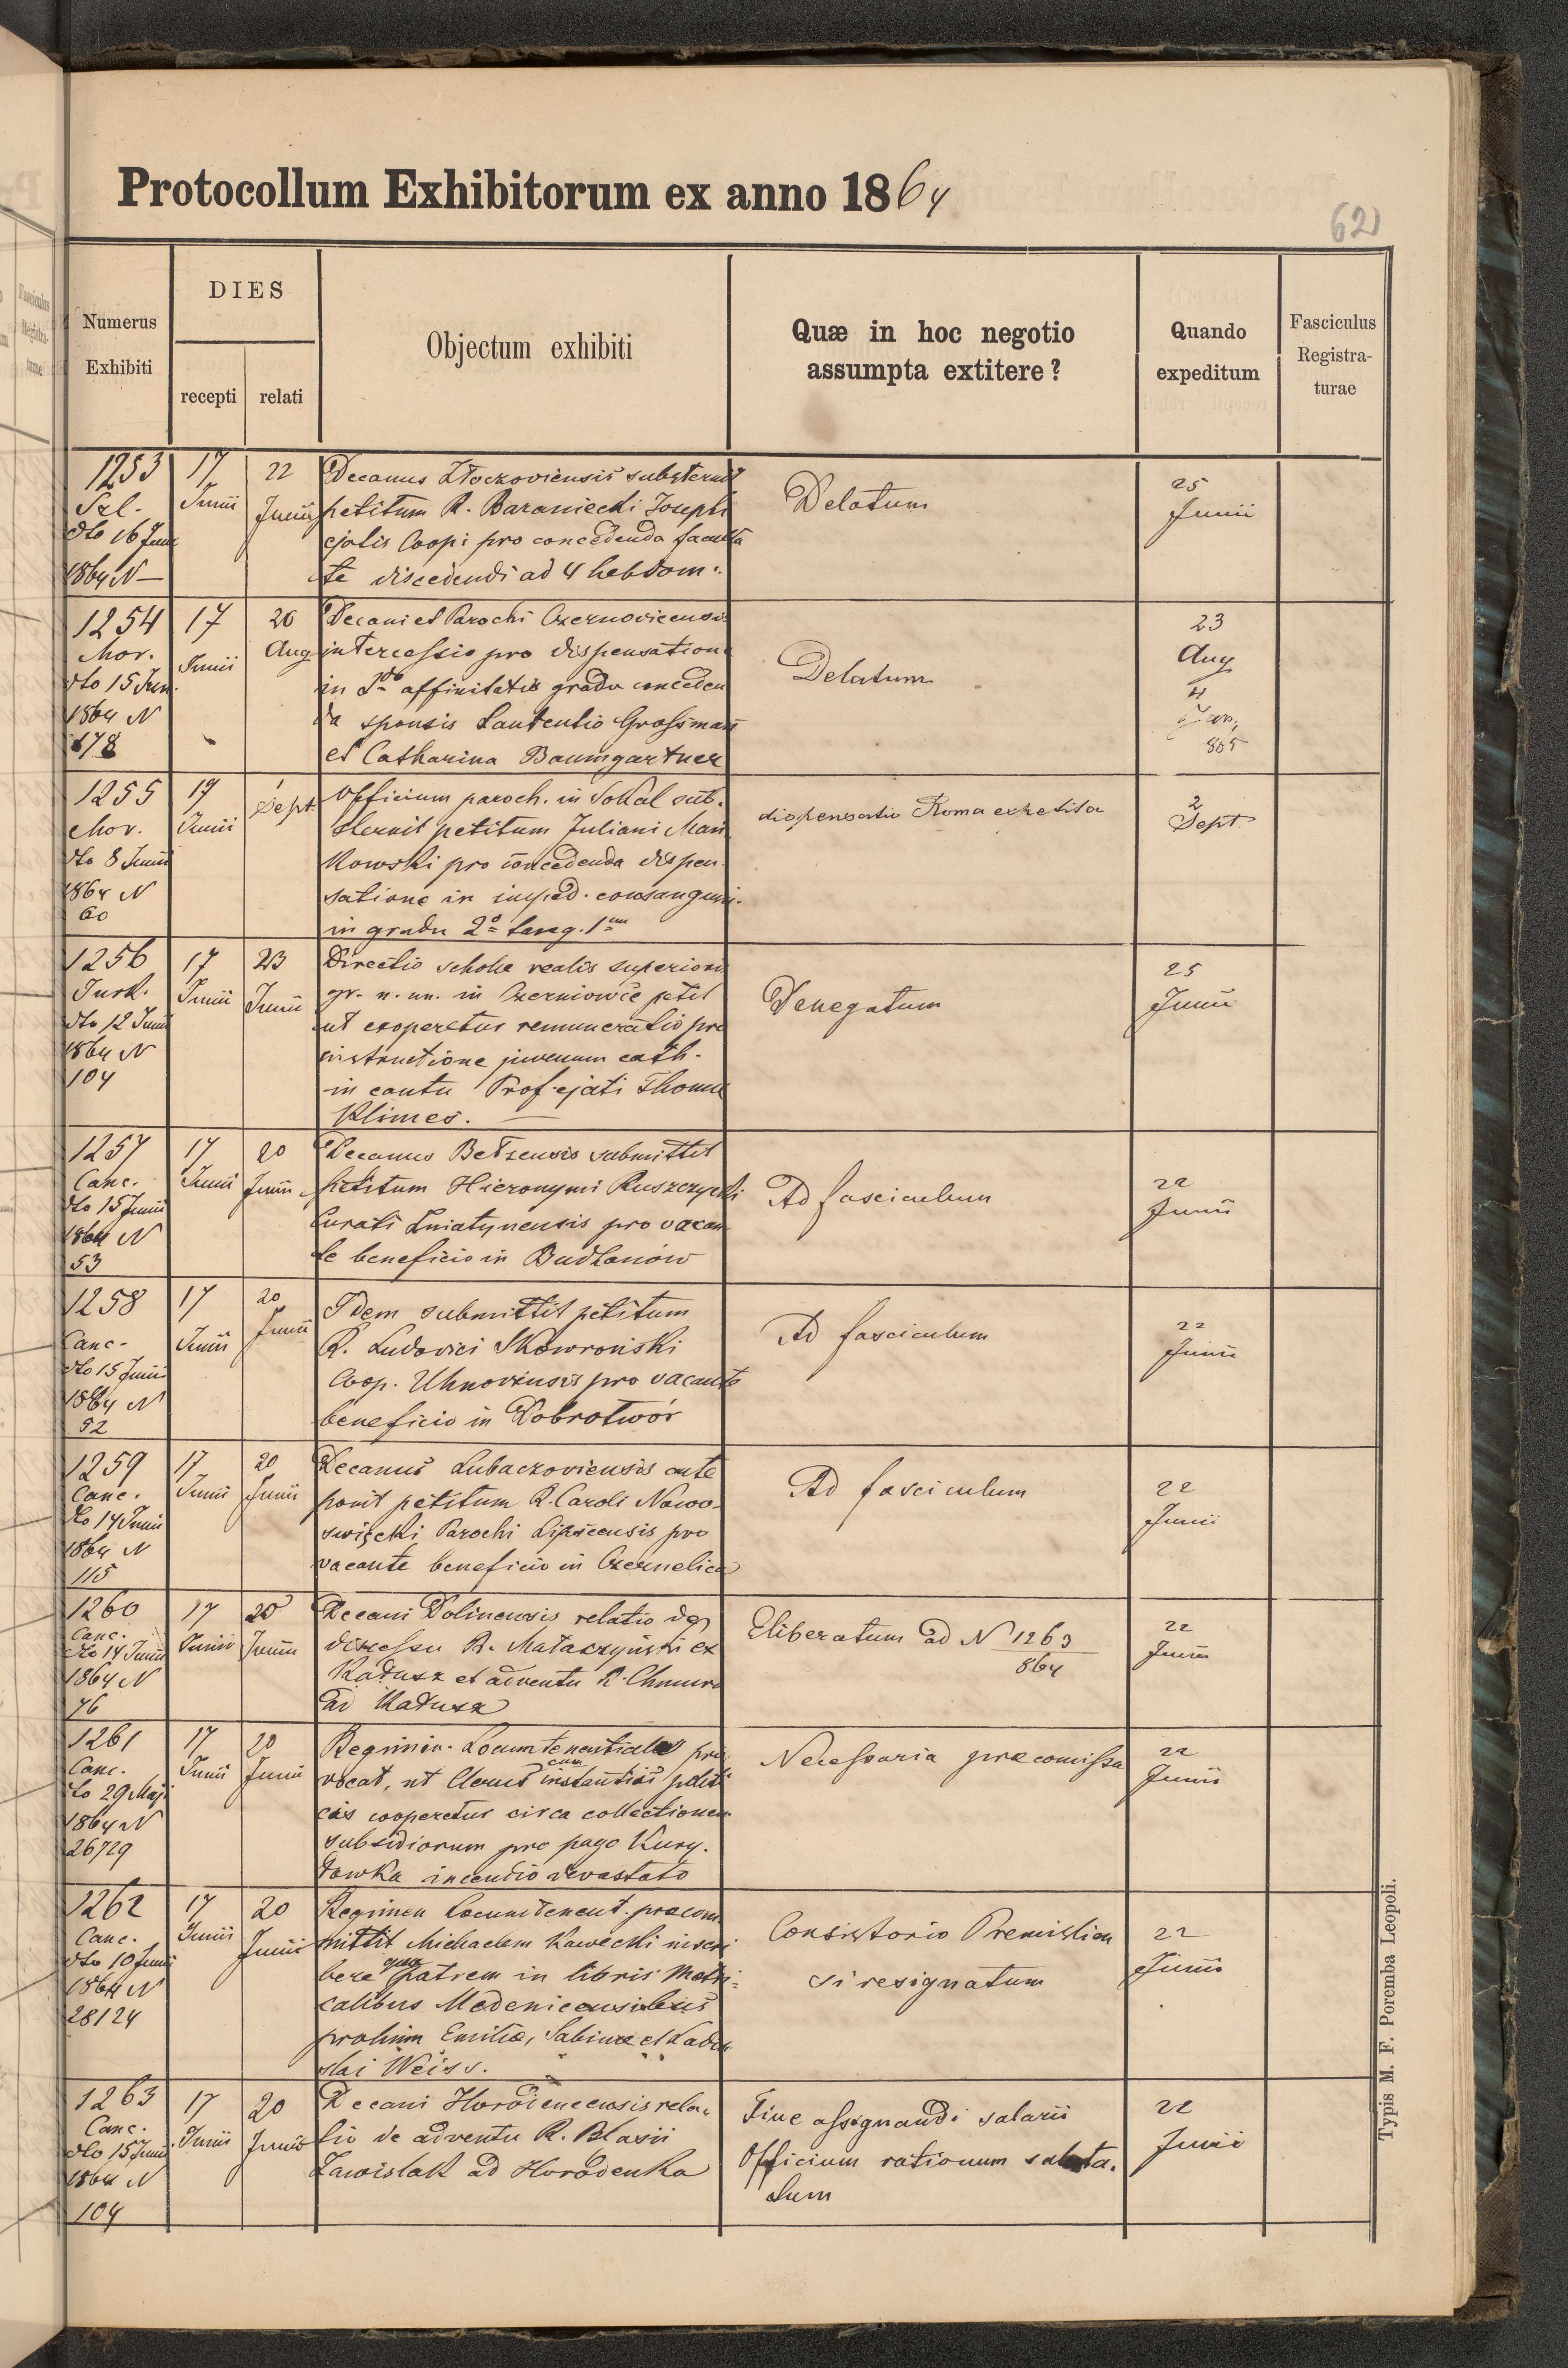 Protocollum Exhibitorum ex anno 1864
62
Numerus
Exhibiti
DIES
recepti
relati
Objectum exhibiti
Quæ in hoc negotio
assumpta extitere?
Quando
expeditum
Fasciculus
Registra-
turae
1253
dto 16 Juni
1864 N —
17
Junii
22
Junii
Decanus Złoczoviensis substernit
petitum R. Baraniecki Josephi
ejatis Coopi pro concedenda faculta
te discedendi ad 4 hebdom.
Delatum
25
Junii
1254
Mor.
dto 15 Jun.
1864 N
178
17
Junii
20
Aug
Decani et Parochi Czernovicensis
intercessio pro dispensatione
in affinitatis gradu conceden
da sponsis Grossmann
et Catharina Baumgartner
Delatum
23
Aug
4
Jan.
865
1255
Mor.
dto 8 Junii
1864 N
60
17
Junii
1
Sept
Officium paroch. in Sokal sub-
sternit petitum Juliani Mań
kowski pro concedenda dispen
satione in imped. consanguini.
in gradu 2º tang. 1um
dispensatio Roma expetita
2
Sept
1256
dto 12 Junii
1864 N
104
17
Junii
23
Junii
Directio scholæ realis superioris
gr. n. un. in Czerniowce petit
ut exoperetur remuneratio pro
instructione juvenum cath.
in cantu Prof. ejati Thomæ
Klimes. —
Denegatum
25
Junii
1257
Canc.
dto 15 Junii
1864 N
53
17
Junii
20
Junii
Decanus Bełzensis submittit
petitum Hieronymi Ruszczycki
Curati pro vacan
te beneficio in Budzanów
Ad fasciculum
22
Junii
1258
Canc.
dto 15 Junii
1864 N
52
17
Junii
20
Junii
Idem submittit petitum
R. Ludovici Skowroński
Coop. Uhnoviensis pro vacante
beneficio in Dobrotwór
Ad fasciculum
22
Junii
1259
Canc.
dto 14 Junii
1864 N
115
17
Junii
20
Junii
Decanus Lubaczoviensis ante
ponit petitum R. Caroli Nowo-
święcki Parochi Lipscensis pro
vacante beneficio in Czernelica
Ad fasciculum
22
Junii
1260
Canc.
dto 14 Junii
1864 N
76
17
Junii
20
Junii
Decani Dolinensis relatio de
discessu R. Mataszyński ex
Kałusz et adventu R. Chmura
ad Kałusz
Eliberatum ad N 1263
864
22
Junii
1261
Canc.
dto 29 Maji
1864 N
26729
17
Junii
20
Junii
Regimin. Locumtenentiales pro
vocat, ut Clerus cum instantiis politi
cis cooperetur circa collectionem
subsidiorum pro pago Kury.
łowka incendio devastato
Necessaria præcomissa
22
Junii
1262
Canc.
dto 10 Junii
1864 N
28124
17
Junii
20
Junii
Regimen Locumtenent. præcom
mittit Michaelem Kawecki inscri
bere qua patrem in libris Metri-
calibus Medenicensibus
prolium Emiliæ, Sabinæ et Ladis
lai Weiss.
Consistorio Premislien
si resignatum
22
Junii
1263
Canc.
dto 15 Junii
1864 N
104
17
Junii
20
Junii
Decani Horodencensis rela-
tio de adventu R. Blasii
Zawislak ad Horodenka
Fine assignandi salarii
Officium rationum saluta-
tum
22
Junii
Typis M. F. Poremba Leopoli.